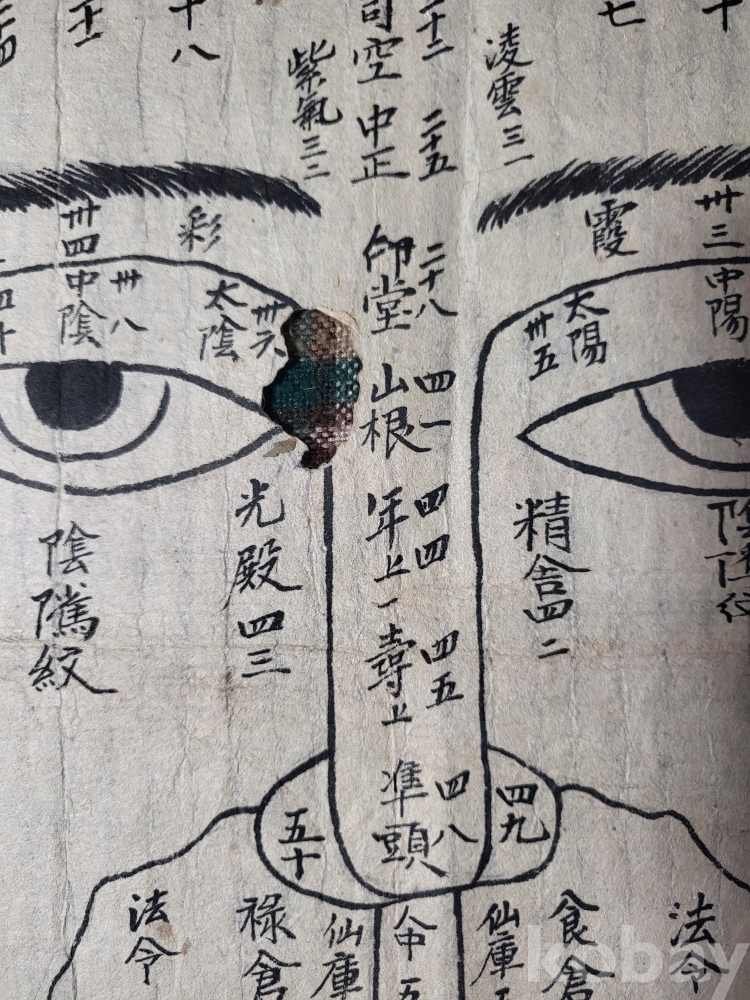 十八
司空
二十二
七
十
紫氣三二
中正
二十五
淩雲三一
彩
霞
卅四中陰
卅三中陽
卅八
太陰
卅六
印堂
二十八
太陽
卅五
山根
四一
光殿四三
年上一
四四
精舍四二
陰隲紋
壽上
四五
準頭
四八
四九
五十
法令
祿倉
仙庫
命五
仙庫
食倉
法令
kobay